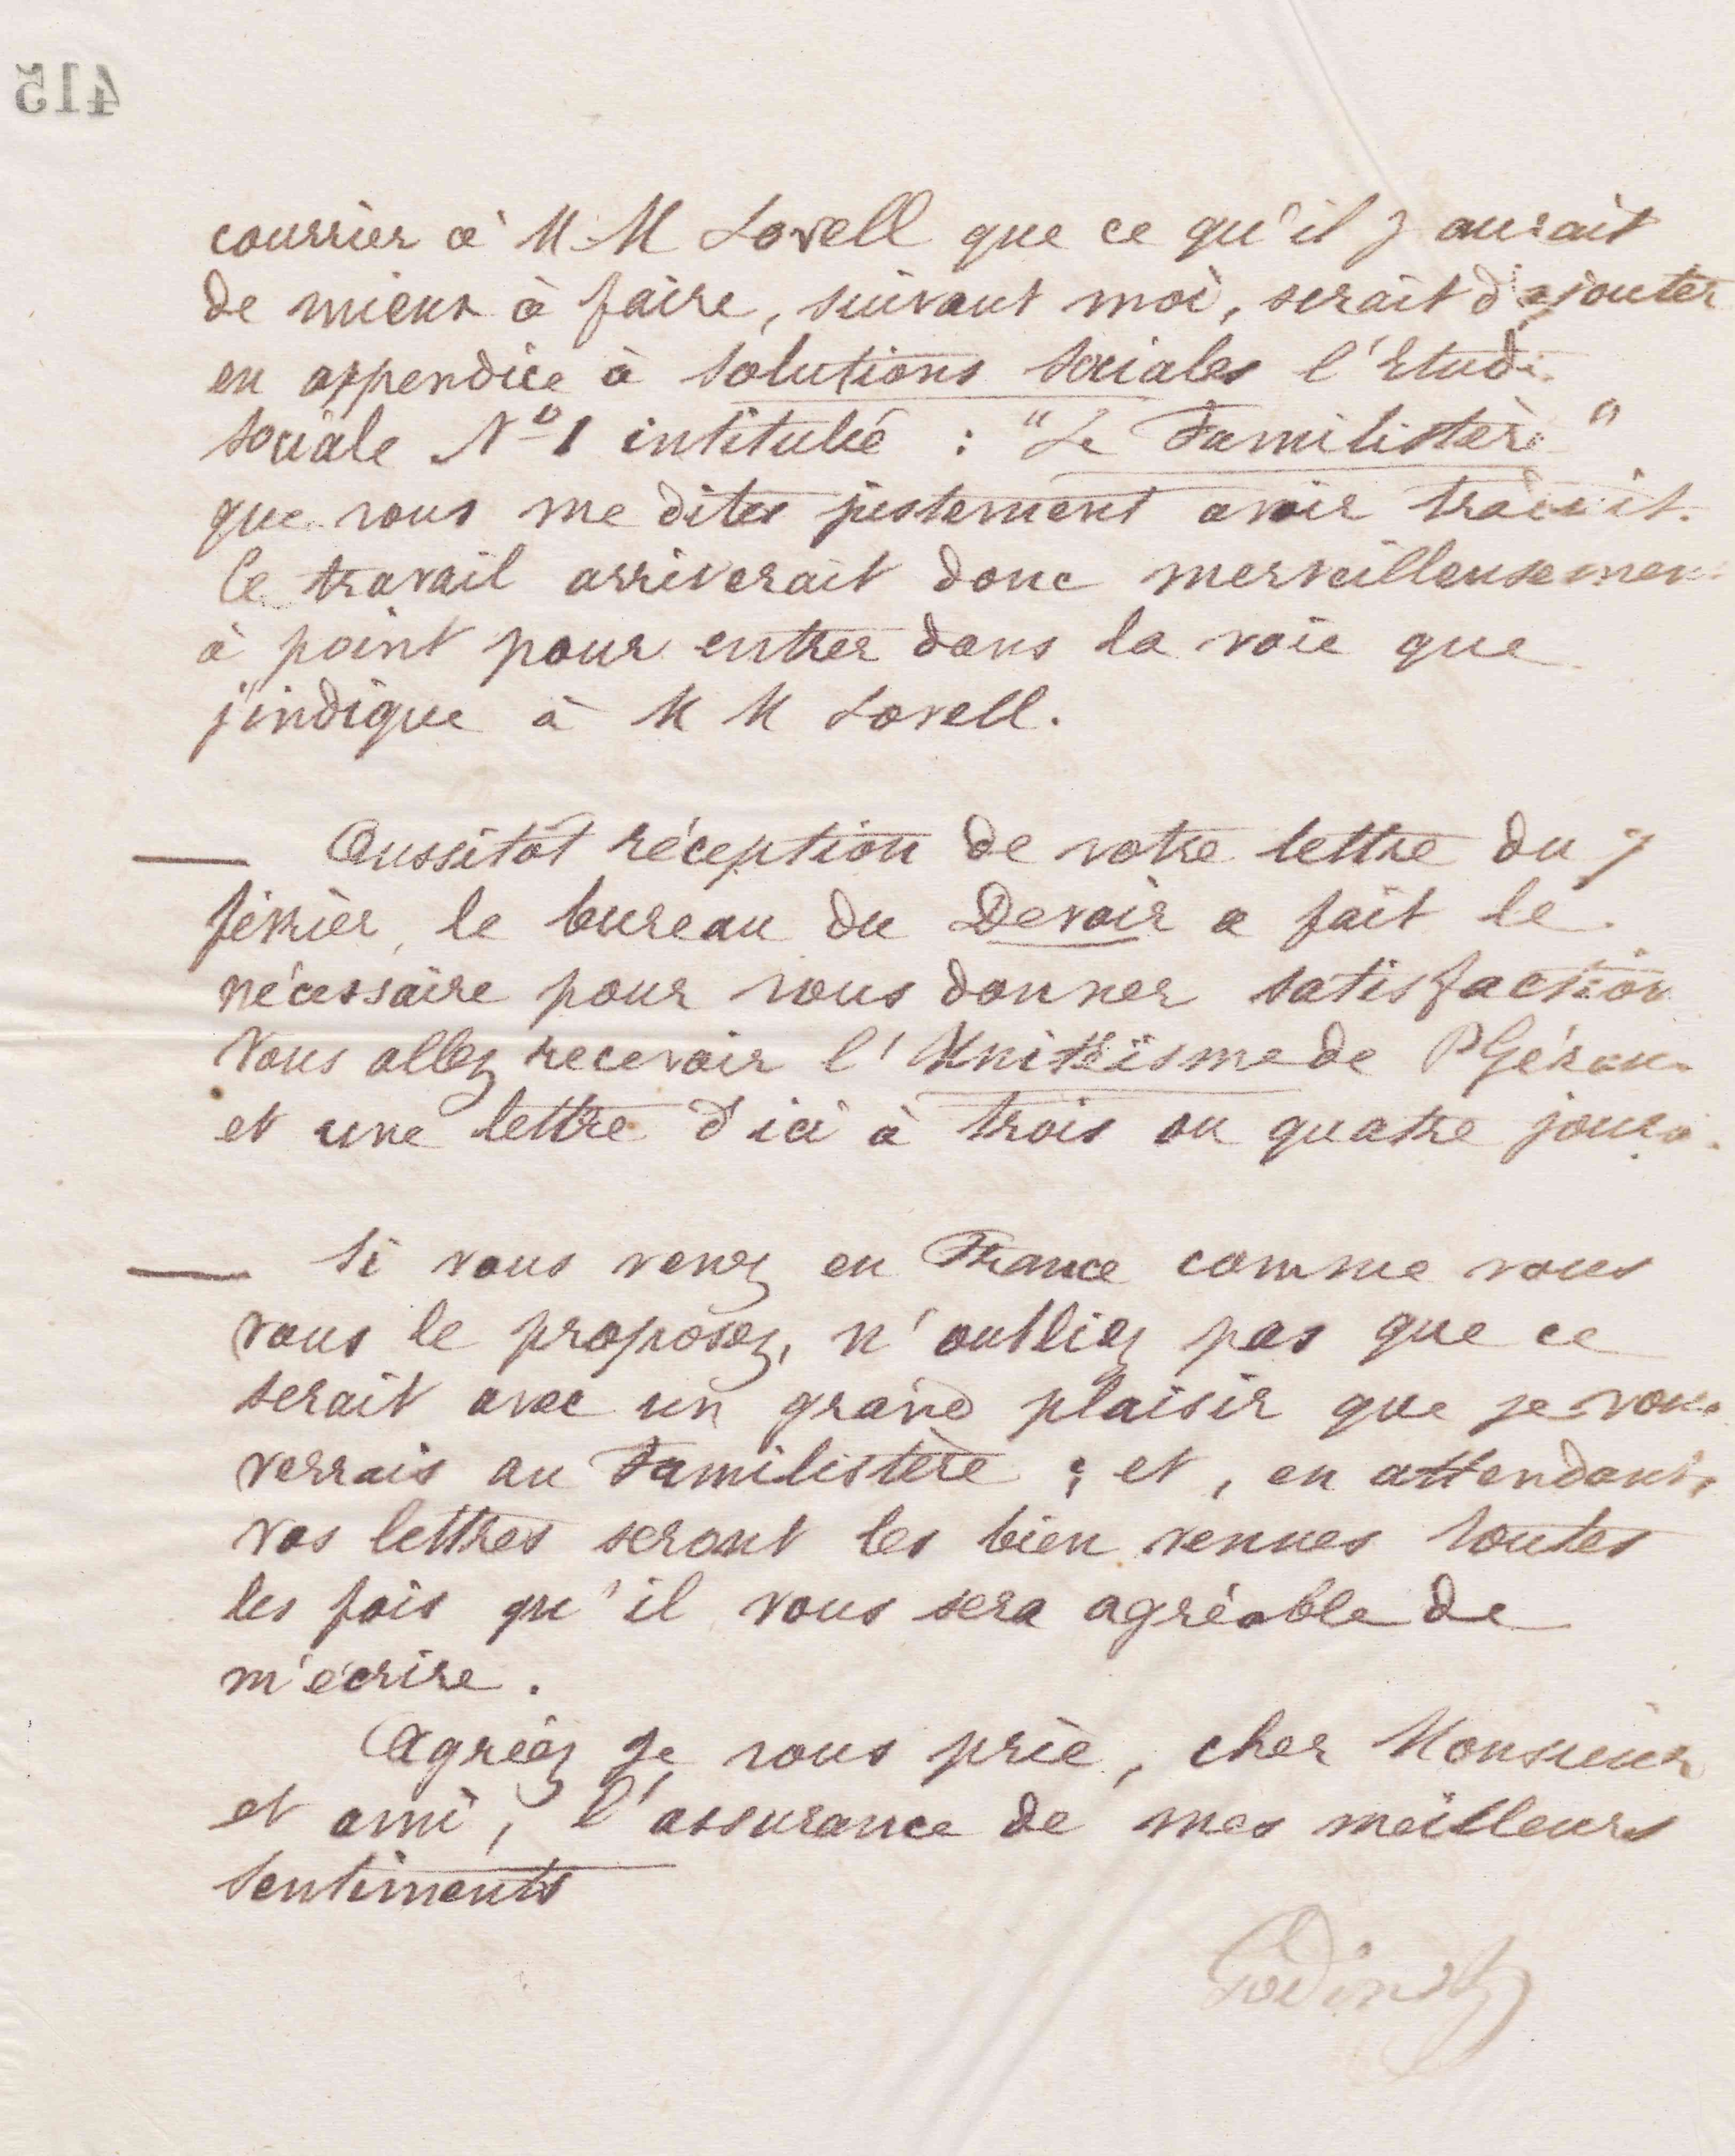 415
courrier à M M Lovell que ce qu'il y aurait
de mieux à faire, suivant moi, serait d'ajouter
en appendice à Solutions sociales l'Etude
sociale No 1 intitulée : "Le Familistère"
que vous me dites justement avoir traduit.
Ce travail arriverait donc merveilleusement
à point pour entrer dans la voie que
j'indique à M M Lovell.
— Aussitôt réception de votre lettre du 7
février, le bureau du Devoir a fait le
nécessaire pour vous donner satisfaction
Vous allez recevoir l'Unitéisme de
et une lettre d'ici à trois ou quatre jours.
— Si vous venez en France comme vous
vous le proposez, n'oubliez pas que ce
serait avec un grand plaisir que je vous
verrais au Familistère ; et, en attendant,
vos lettres seront les bien venues toutes
les fois qu'il vous sera agréable de
m'écrire.
Agréez je vous prie, cher Monsieur
et ami, l'assurance de mes meilleurs
sentiments
Godin